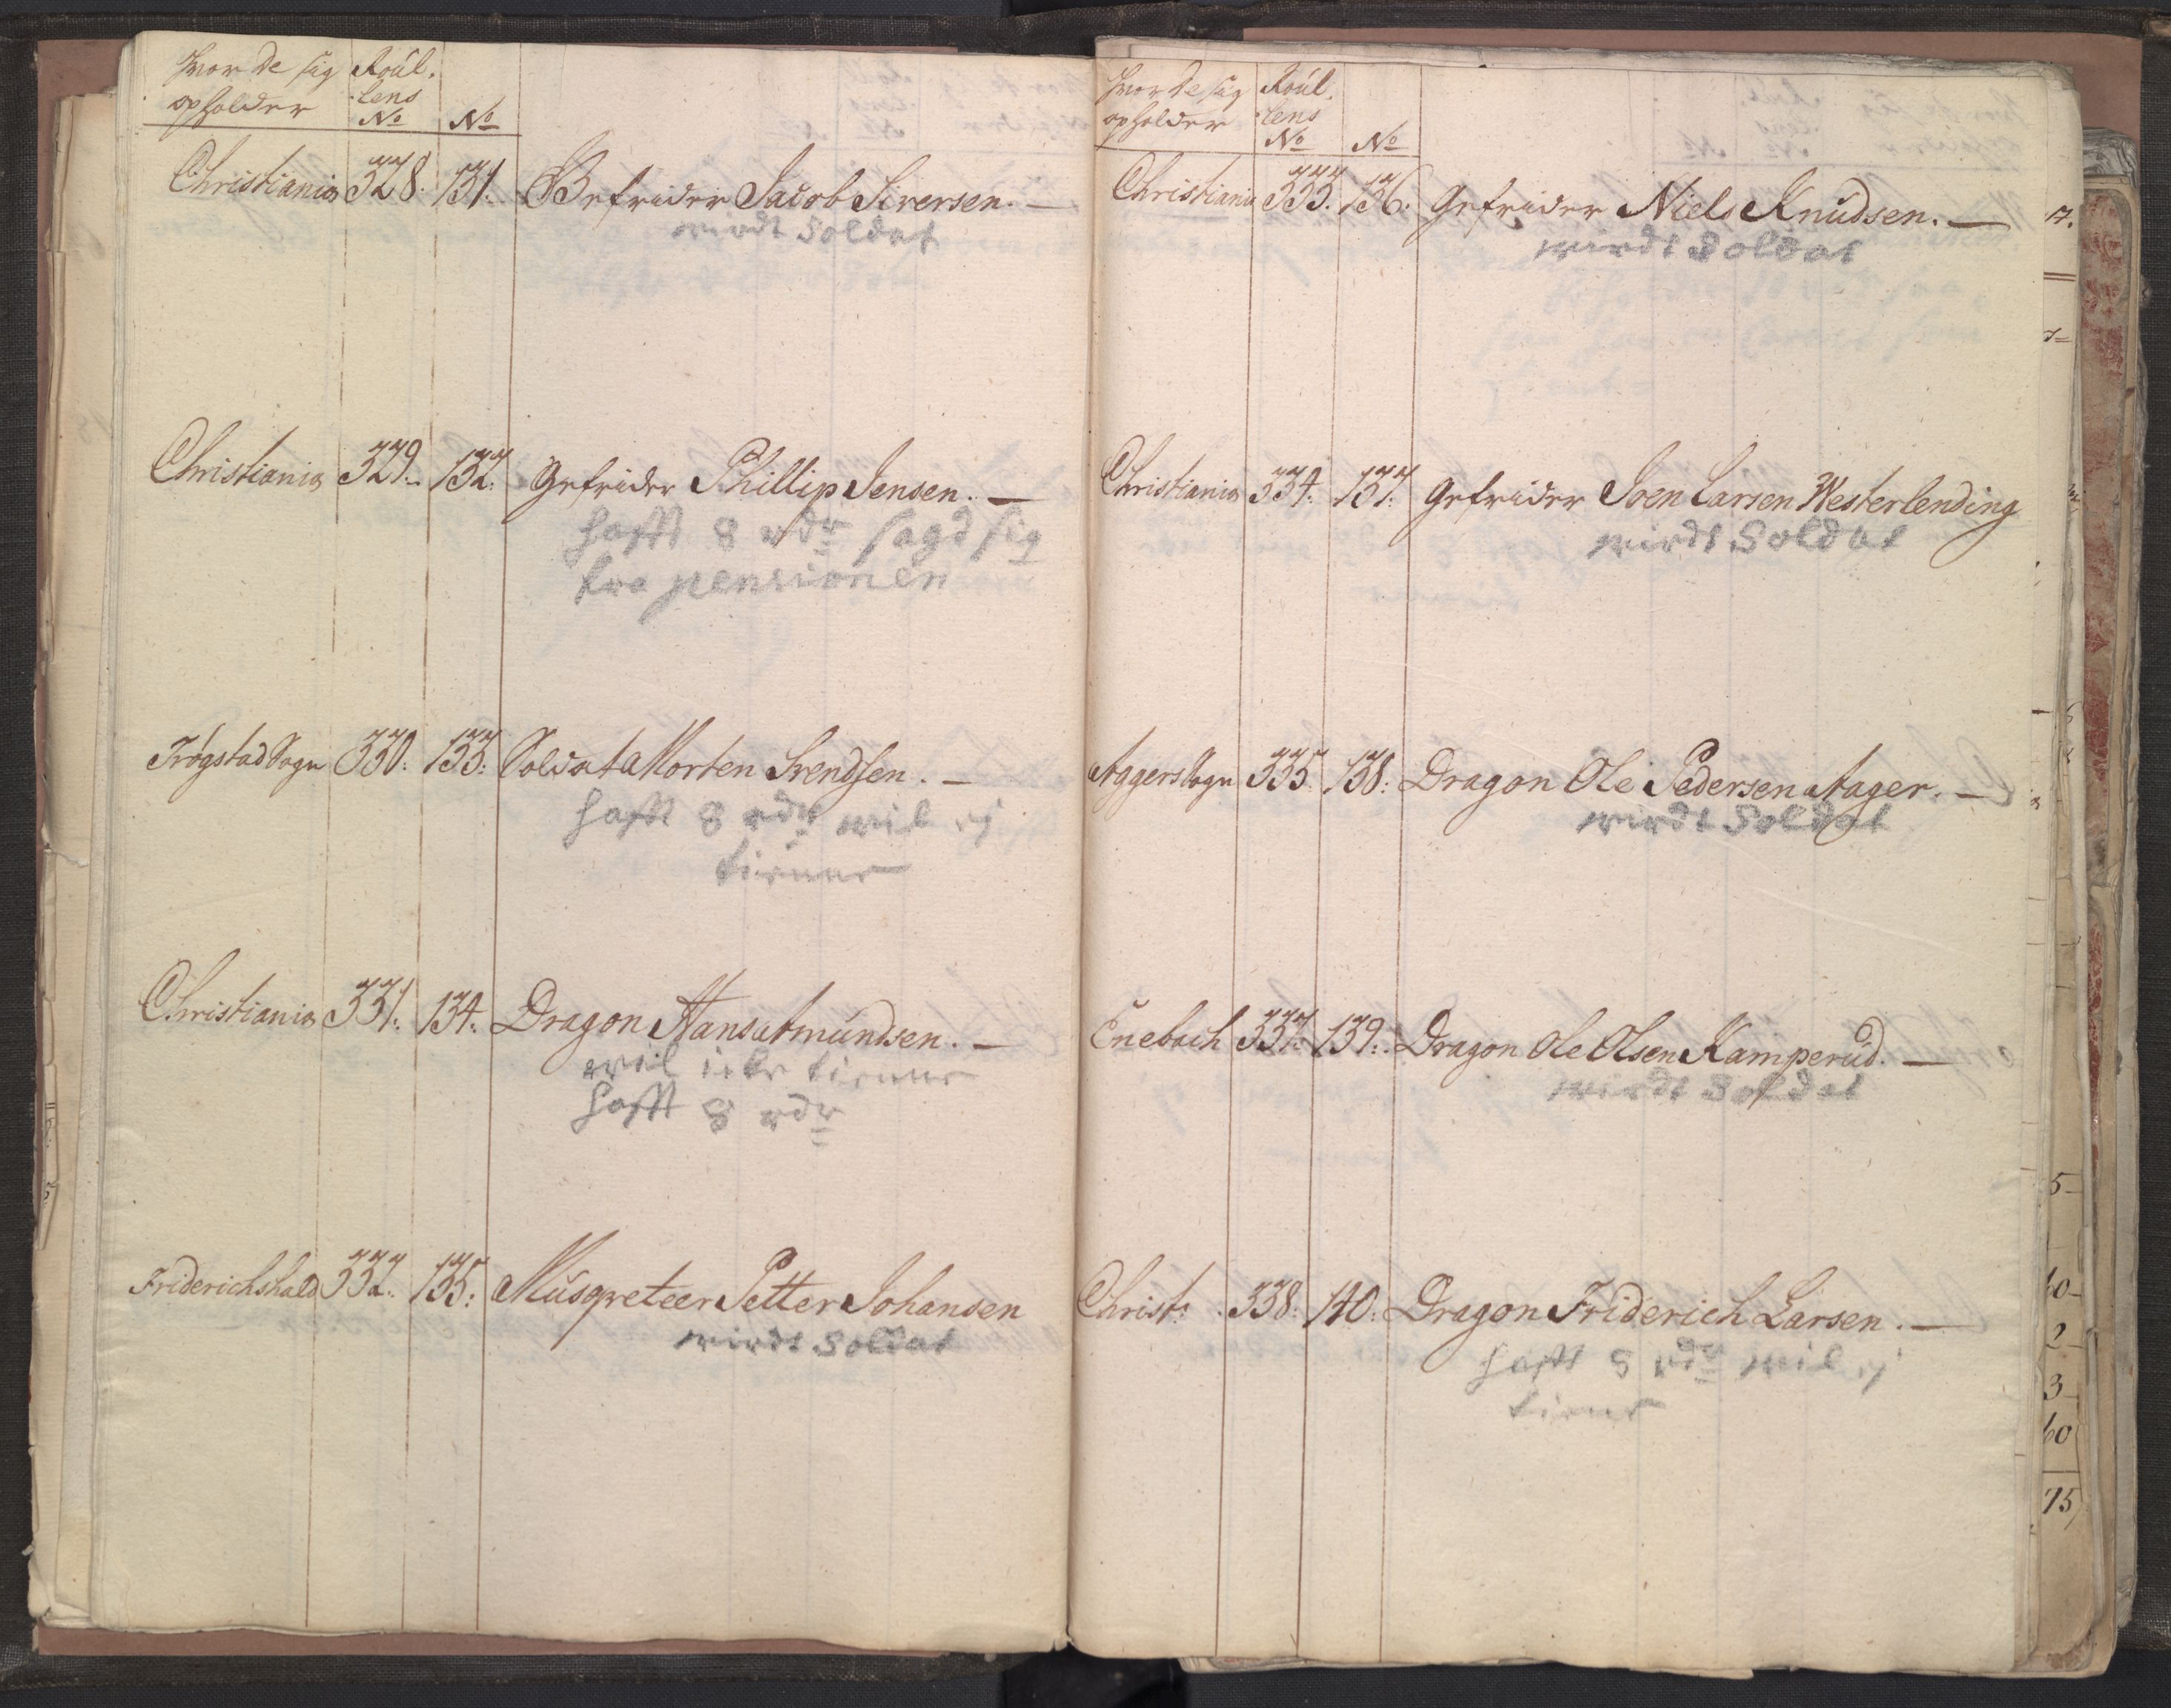 Hvor de sig Roúl.
opholder lens
No No
Christiania 328. 131. Gefrider Jacob Siversen. —
wirdt Soldat
Christiania 329. 132. Gefrider Phillip Jensen. —
hafft 8 rdr sagd sig
fra pensionen
Trøgstad Sogn 330. 133. Soldat Morten Svendsen. —
hafft 8 rdr wil ej
tienne
Christiania 331. 134. Dragon Hans Amundsen. —
wil icke tienne
hafft 8 rdr
Friderichshald 332. 135. Musqveteer Petter Johansen
wirdt Soldat
Hvor de sig Roúl.
opholder lens
No No
Christiania 333. 136. Gefrider Niels Knúdsen. —
wirdt Soldat
Christiania 334. 137. Gefrider Joen Larsen Westerlending
wirdt Soldat
Aggers Sogn 335. 138. Dragon Ole Pedersen Aager. —
wirdt Soldat
Enebach 337. 139. Dragon Ole Olsen Kamperúd. —
wirdt Soldat
Christ: 338. 140. Dragon Friderich Larsen. —
hafft 8 rdr wil ej
tiene